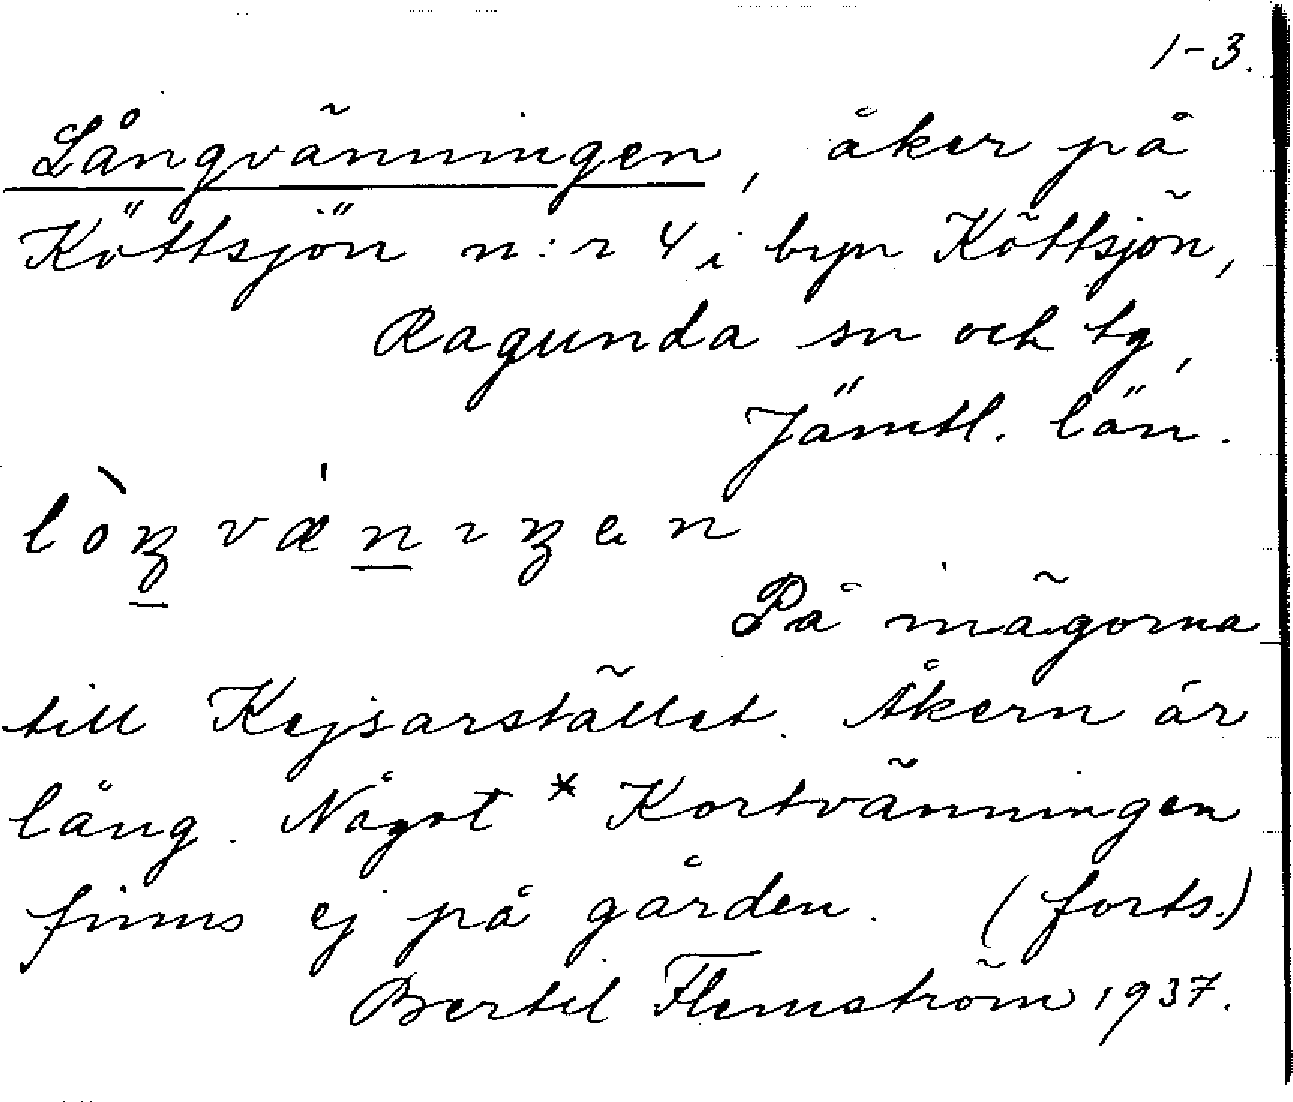 1-3.
Långvänningen, åker på
Köttsjön n:r 4 i byn Köttsjön,
Ragunda sn och tg,
Jämtl. län.
lòŋvǽnıŋen
På inägorna
till Kejsarstället. Åkern är
lång. Något * Kortvänningen
finns ej på gården. (forts.)
Bertil Flemström 1937.